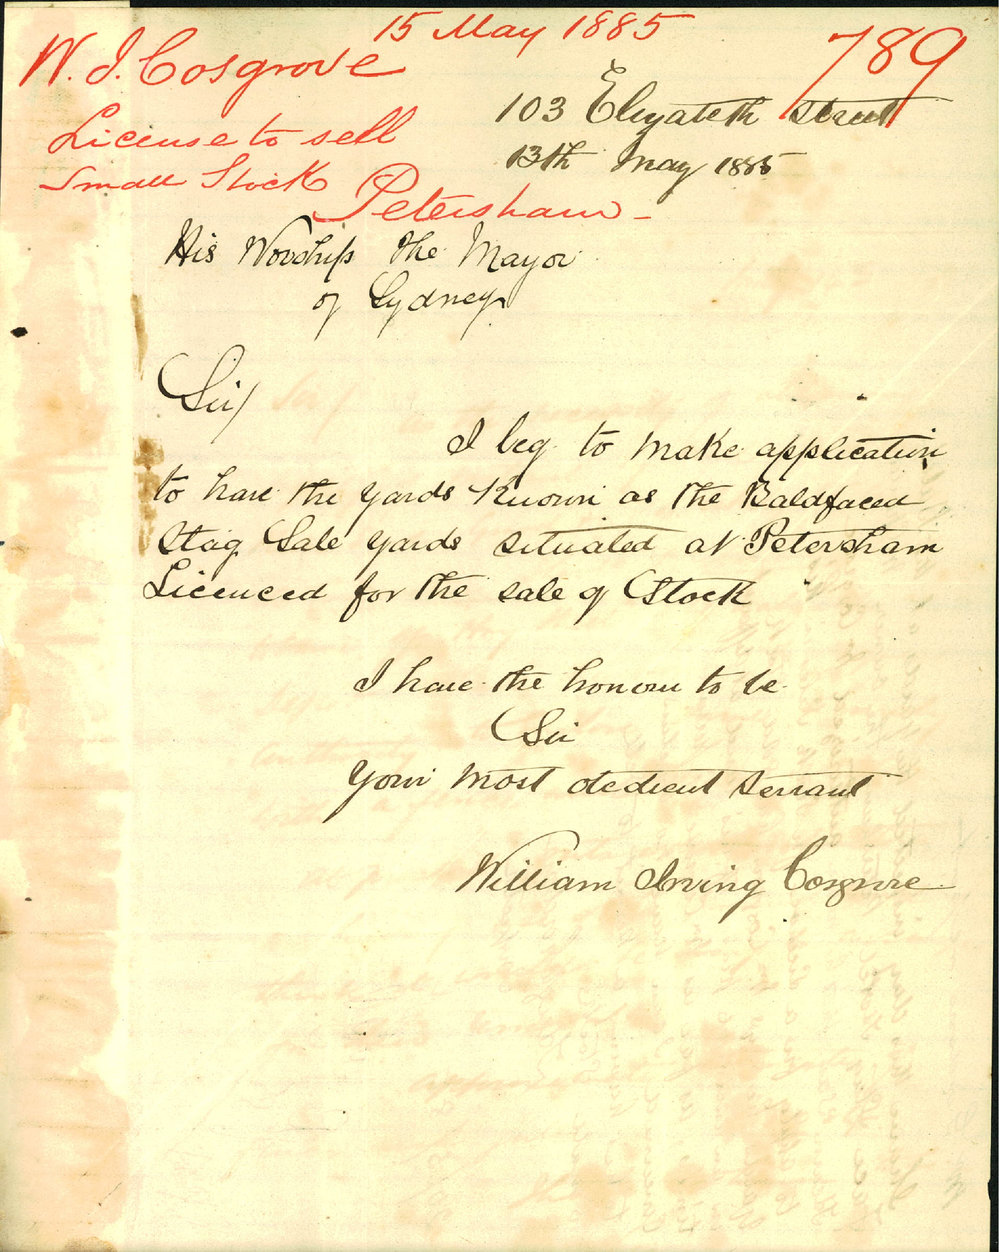 15 May 1885
789
W. I. Cosgrove
License to sell
Small Stock
Petersham
103 Elizabeth Street
13th May 1885
His Worship the Mayor
of Sydney
Sir/
I beg to make application
to have the yards Known as the Baldfaced
Stag Sale yards situated at Petersham
Licenced for the sale of Stock
I have the honour to be
Sir
Your most obedient servant
William Irving Cosgrove